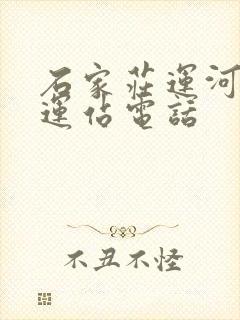 石家莊運河
運佔電話
不丑不怪